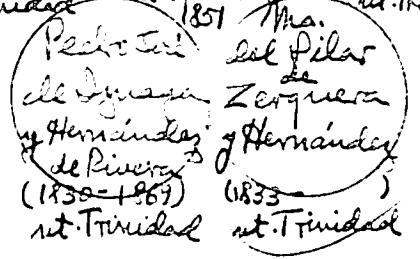 1851
Pedro José
de Iznaga
y Hernández
de Rivera
(1830-1869)
nt. Trinidad
Ma.
del Pilar
de
Zerquera
y Hernández
(1833- )
nt. Trinidad